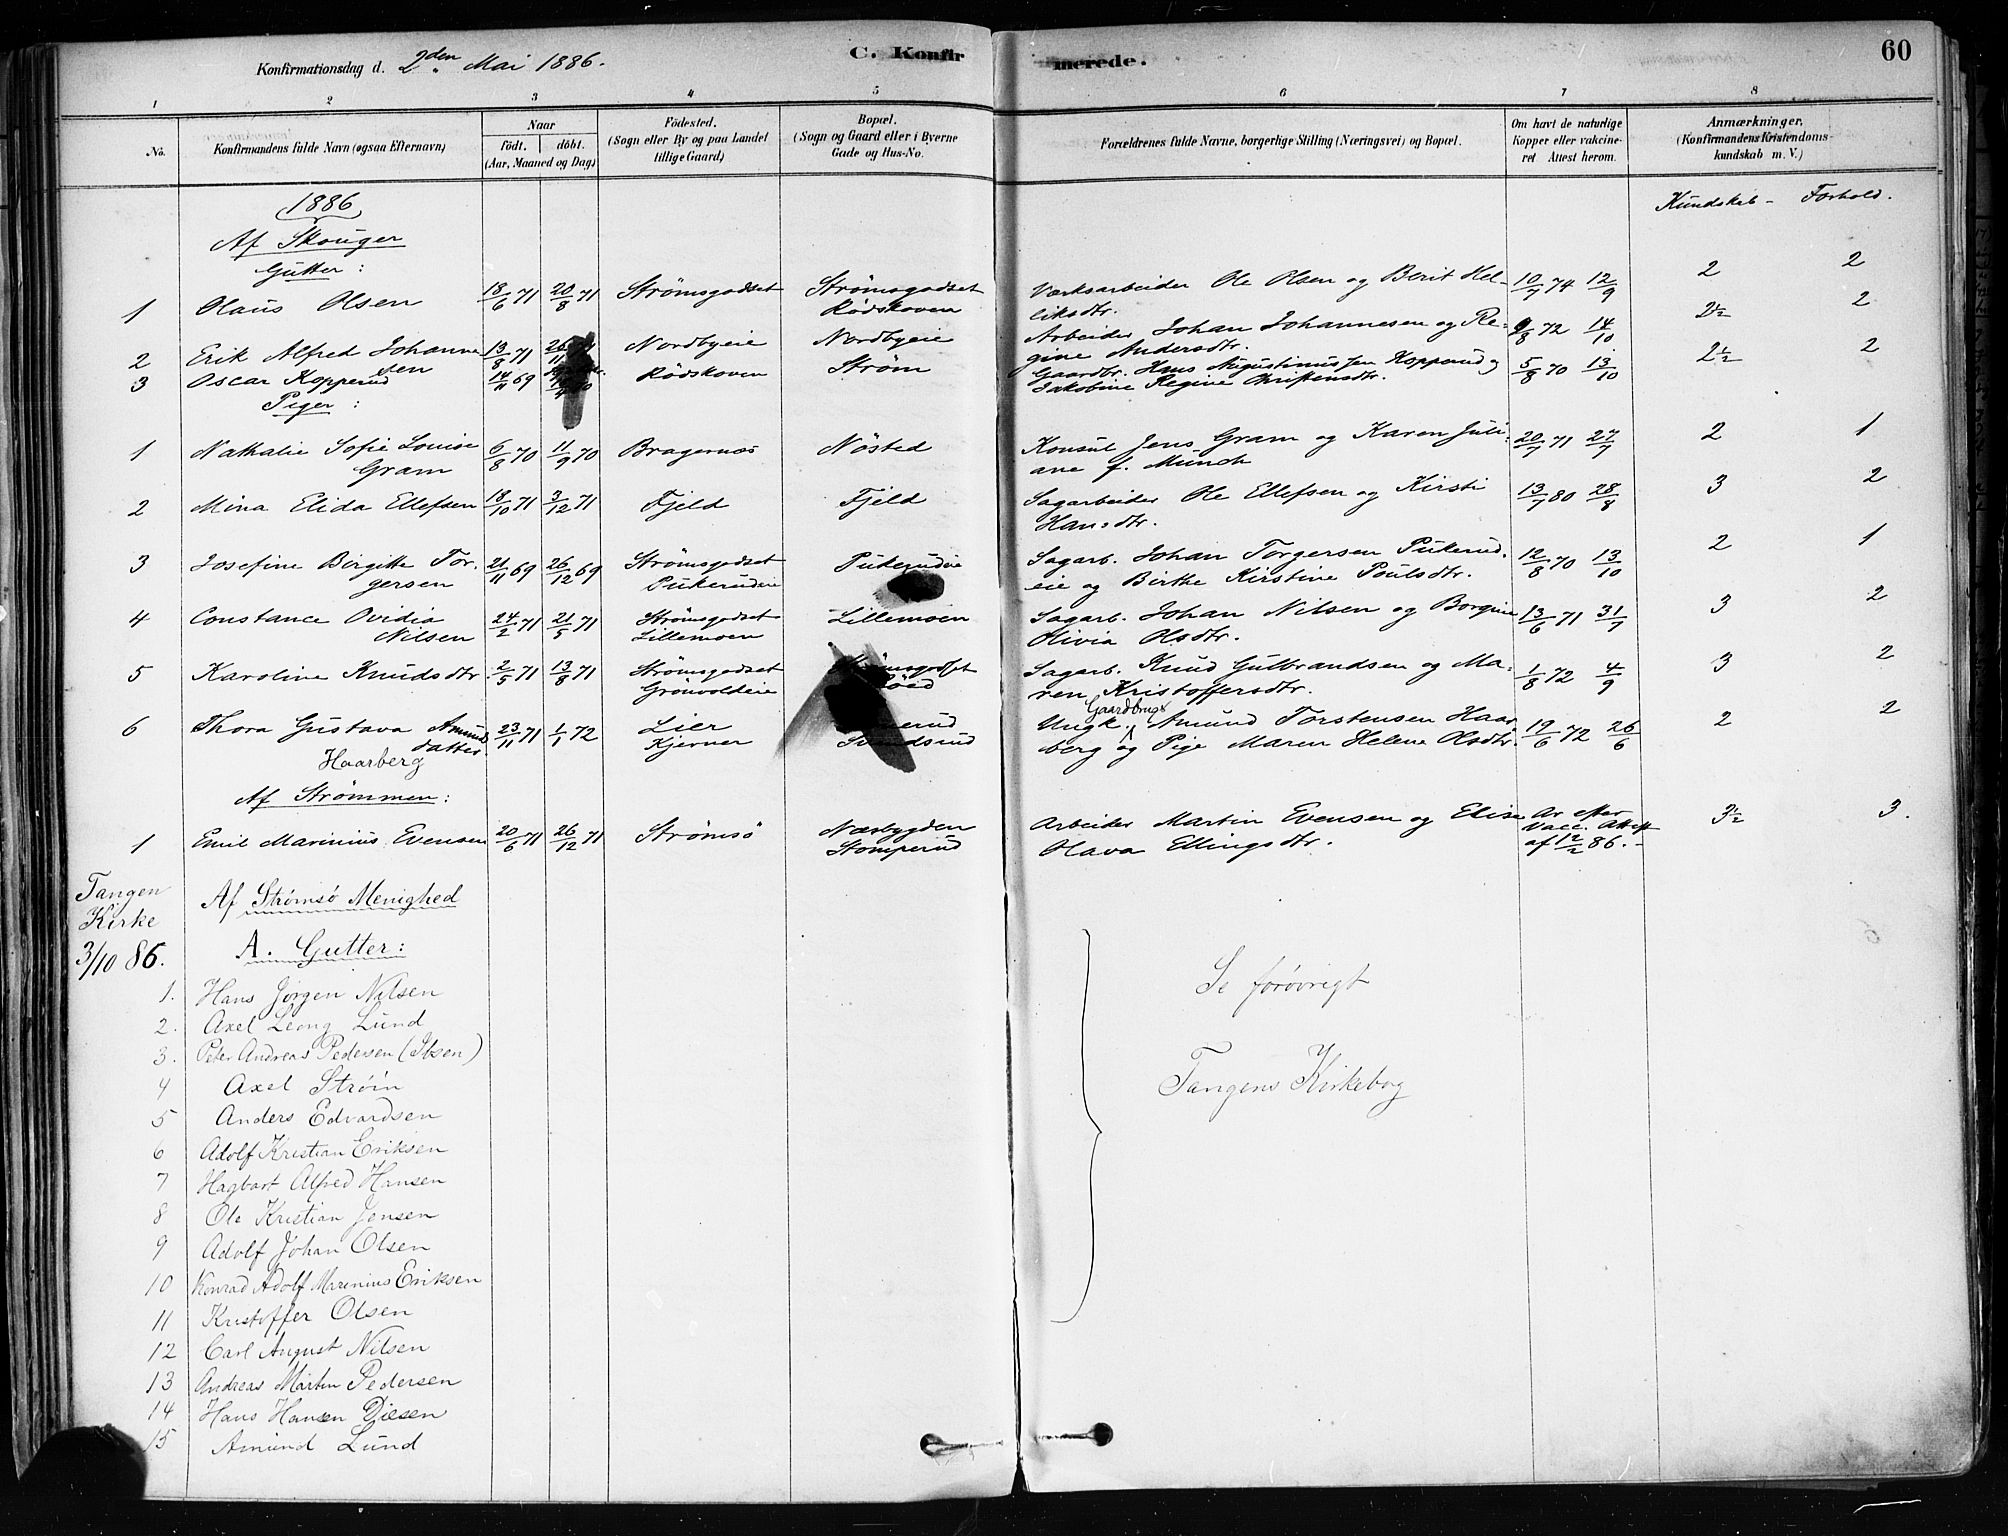 Konfirmationsdag d. 2den Mai 1886.
C. Konfirmerede.
60
1 2 3 4 5 6 7 8
No.
Konfirmandens fulde Navn (ogsaa Efternavn)
Naar
födt. döbt.
(Aar, Maaned og Dag)
Födested.
(Sogn eller By og paa Landet
tillige Gaard)
Bopæl.
(Sogn og Gaard eller i Byerne
Gade og Hus-No.
Forældrenes fulde Navne, borgerlige Stilling (Næringsvei) og Bopæl.
Om havt de naturlige
Kopper eller vakcine-
ret Attest herom.
Anmærkninger.
(Konfirmandens Kristendoms-
kundskab m. V.)
1886
Kundskab - Forhold.
Af Skouger
Gutter:
1 Olaus Olsen 18/6 71 20/8 71 Strömsgodset Strömsgodset
Rödskoven
Værksarbeider Ole Olsen og Berit Hel-
liksdtr. 10/7 74 12/9 2 2
2 Erik Alfred Johanne
sen 13/8 71 Nordbyeie Nordbyeie
Arbeider Johan Johannesen og Re-
gine Andersdtr. 9/8 72 14/10 2½ 2
3 Oscar Kopperud 14/11 69 Rödskoven Ström
Gaardbr. Hans Augustinussen Kopperud og
Jakobine Regine Christensdtr. 5/8 70 13/10 2½ 2
Piger:
1 Nathalie Sofie Louise
Gram 6/8 70 11/9 70 Bragernæs Nösted
Konsul Jens Gram og Karen Juli-
ane f. Münch 20/7 71 27/7 2 1
2 Mina Elida Ellefsen 18/10 71 3/12 71 Fjeld Fjeld
Sagarbeider Ole Ellefsen og Kirsti
Hansdtr. 13/7 80 28/8 3 2
3 Josefine Birgitte Tor-
gersen 21/11 69 26/12 69 Strömsgodset
Pukerudeie Pukerudeie
Sagarb. Johan Torgersen Pukerud-
eie og Birthe Kirstine Poulsdtr. 12/8 70 13/10 2 1
4 Constance Ovidia
Nilsen 24/2 71 21/5 71 Strömsgodset
Lillemoen Lillemoen
Sagarb. Johan Nilsen og Borgine
Olivia Olsdtr. 13/6 71 31/7 3 2
5 Karoline Knudsdtr. 2/5 71 13/8 71 Strömsgodset
Grönvoldeie Strömsgodset
Sagarb. Knud Gulbrandsen og Ma-
ren Kristoffersdtr. 1/8 72 4/9 3 2
6 Thora Gustava Amunds
datter
Haarberg 23/11 71 1/1 72 Lier
Kjerner
Ungk. Gaardbrug. Amund Torstensen Haar
berg og Pige Maren Helene Olsdtr. 19/6 72 26/6 2 2
Af Strömmen:
1 Emil Marinius Evensen 20/6 71 26/12 71 Strömsö Nærbygden
Stomperud
Arbeider Martin Evensen og Elise
Olava Ellingsdtr. Ar efter
Vacc. Attest
af 12/2 86. 3½ 3.
Tangen
Kirke
3/10 86.
Af Strömsö Menighed
A. Gutter:
1. Hans Jörgen Nilsen
2. Axel Leong Lund
3. Peter Andreas Pedersen (Ibsen)
4 Axel Ströin
5 Anders Edvardsen
6 Adolf Kristian Eriksen
7 Hagbart Alfred Hansen
8 Ole Kristian Jensen
9 Adolf Johan Olsen
10 Konrad Adolf Marinius Eriksen
11 Kristoffer Olsen
12 Carl August Nilsen
13 Andreas Martin Pedersen
14 Hans Hansen Diesen
15 Amund Lund
Se forövrigt
Tangens Kirkebog